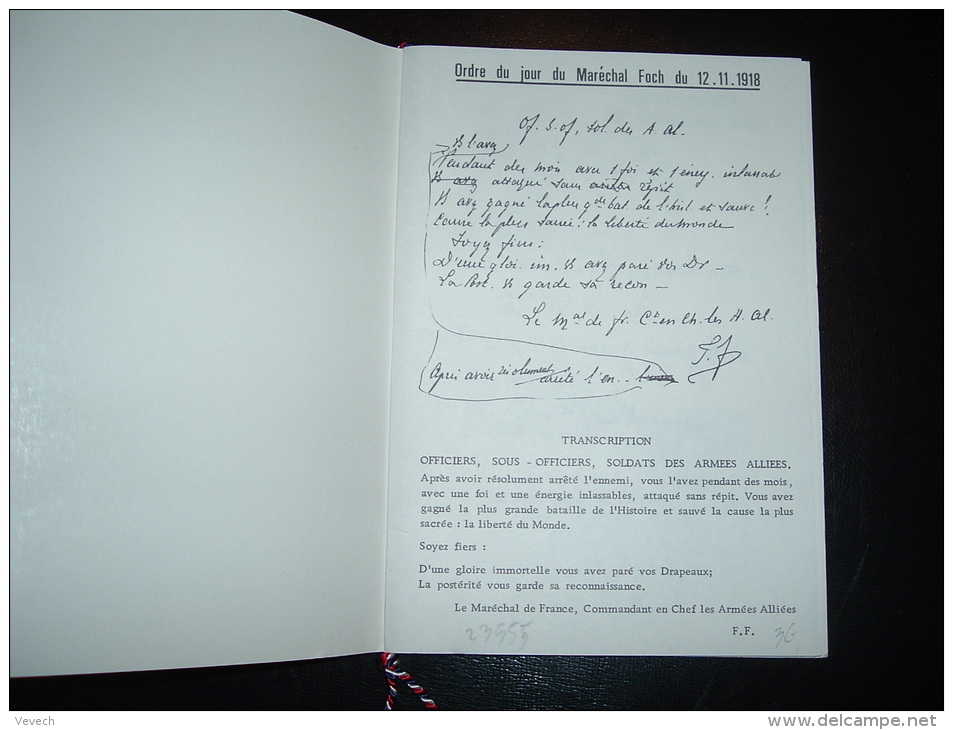 Ordre du jour du Maréchal Foch du 12.11.1918
Of. S. of, sol. des A. Al.
Vs l'avez
Pendant des mois avec 1 foi et 1 énerg. inlassab
Vs avez attaqué sans répit
Vs avez gagné la plus gde bat de l'hist et sauvé l.
Cause la plus sacrée : la liberté du monde
Soyez fiers :
D'une gloi. im. Vs avez paré Vos Dr -
La Post. Vs garde sa recon -
Le Mal de fr. Ct en Ch. les A. Al.
F. F
Après avoir résolument arrêté l'en..
TRANSCRIPTION
OFFICIERS, SOUS - OFFICIERS, SOLDATS DES ARMEES ALLIEES.
Après avoir résolument arrêté l'ennemi, vous l'avez pendant des mois,
avec une foi et une énergie inlassables, attaqué sans répit. Vous avez
gagné la plus grande bataille de l'Histoire et sauvé la cause la plus
sacrée : la liberté du Monde.
Soyez fiers :
D'une gloire immortelle vous avez paré vos Drapeaux;
La postérité vous garde sa reconnaissance.
Le Maréchal de France, Commandant en Chef les Armées Alliées
F.F.
23555
Vevech
delcampe.net